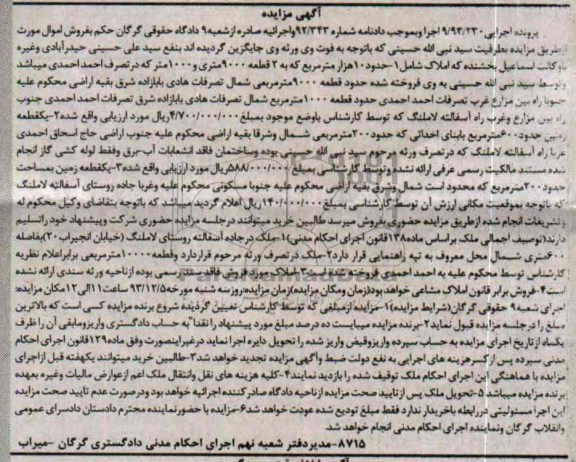 آگهی مزایده
پرونده اجرایی ۹/۹۳/۲۳۰ اجرا وبموجب دادنامه شماره ۹۲/۳۴۳ واجرائیه صادره ازشعبه۹ دادگاه حقوقی گرگان حکم بفروش اموال مورث
ازطریق مزایده بطرفیت سید نبی الله حسینی که باتوجه به فوت وی ورثه وی جایگزین گردیده اند بنفع سید علی حسینی حیدرآبادی وغیره
باوکالت اسماعیل بخشنده که املاک شامل۱-حدود۱۰هزار مترمربع که به ۲ قطعه ۹۰۰۰متری و۱۰۰۰متر که در تصرف احمد احمدی میباشد
وتوسط سید نبی الله حسینی به وی فروخته شده حدود قطعه ۹۰۰۰مترمربعی شمال تصرفات هادی بابازاده شرق بقیه اراضی محکوم علیه
جنوبا راه بین مزارع غرب تصرفات احمد احمدی حدود قطعه ۱۰۰۰مترمربع شمال تصرفات هادی بابازاده شرق تصرفات احمد احمدی جنوب
راه بین مزارع وغرب راه آسفالته لاملنگ که توسط کارشناس باوضع موجود بمبلغ۴/۷۰۰/۰۰۰/۰۰۰ریال مورد ارزیابی واقع شده۲-یکقطعه
زمین حدود۶۰۰مترمربع بابنای احداثی که حدود۲۰۰مترمربعی شمال وشرقا بقیه اراضی محکوم علیه جنوب اراضی حاج اسحاق احمدی
غربا راه آسفالته لاملنگ که درتصرف ورثه مرحوم سید نبی الله حسینی بوده وساختمان فاقد انشعابات آب-برق وفقط لوله کشی گاز انجام
شده مستند مالکیت رسمی عرفی ارائه نشده وتوسط کارشناسی بمبلغ ۵۸۸/۰۰۰/۰۰۰ریال مورد ارزیابی واقع شده۳-یکقطعه زمین بمساحت
حدود۲۰۰مترمربع که محدود است شمال وشرق بقیه اراضی محکوم علیه جنوبا مسکونی محکوم علیه وغربا جاده روستای آسفالته لاملنگ
که باتوجه بموقعیت مکانی ارزش آن توسط کارشناسی بمبلغ۱۴۰/۰۰۰/۰۰۰ریال اعلام گردید میباشد که باتوجه بتقاضای وکیل محکوم له
وتشریفات انجام شده ازطریق مزایده حضوری بفروش میرسد طالبین خرید میتوانند درجلسه مزایده حضوری شرکت وپیشنهاد خود راتسلیم
دارند(توصیف اجمالی ملک براساس ماده۱۳۸قانون اجرای احکام مدنی)۱-ملک درجاده آسفالته روستای لاملنگ (خیابان انجیراب۲۰)بفاصله
۶۰۰متری شمال محل معروف به تپه راهنمایی قرار دارد۲-ملک درتصرف ورثه مرحوم قراردارد وقطعه۱۰۰۰۰مترمربعی برابراعلام نظریه
کارشناس توسط محکوم علیه به احمد احمدی فروخته شده است۳-املاک مورد فروش فاقد سند رسمی بوده ازناحیه ورثه سندی ارائه نشده
است۴-فروش برابر قانون املاک مشاعی خواهد بود(زمان ومکان مزایده)زمان مزایده:روزسه شنبه مورخه۹۳/۱۲/۵ ساعت۱۱الی۱۲مکان مزایده:
اجرای شعبه۹ حقوقی گرگان(شرایط مزایده)۱-مزایده ازمبلغی که توسط کارشناس تعیین گردیده شروع برنده مزایده کسی است که بالاترین
مبلغ را درجلسه مزایده قبول نماید۲-برنده مزایده میبایست ده درصد مبلغ مورد پیشنهاد را نقداً"به حساب دادگستری واریزومابقی آن را ظرف
یکماه ازتاریخ اجرای مزایده به حساب سپرده واریزوقبض واریز شده را تحویل دایره اجرا نماید درغیراینصورت وفق ماده۱۲۹قانون اجرای احکام
مدنی سپرده پس از کسرهزینه های اجرایی به نفع دولت ضبط وآگهی مزایده تجدید خواهد شد۳-طالبین خرید میتوانند یکهفته قبل ازاجرای
مزایده با هماهنگی این اجرای احکام ملک توقیف شده را بازدید نمایند۴-کلیه هزینه های نقل وانتقال ملک اعم ازعوارض مالیات وغیره بعهده
برنده مزایده میباشد۵-تحویل ملک پس ازتایید صحت مزایده ازناحیه دادگاه صادرکننده اجرائیه خواهد بود ودرصورت عدم تایید صحت مزایده
این اجرا مسئولیتی دررابطه باخریدار ندارد فقط مبلغ تودیع شده عودت خواهد شد۶-مزایده با حضورنماینده محترم دادستان دادسرای عمومی
وانقلاب گرگان ونماینده اجرای احکام مدنی انجام خواهد شد.
۸۷۱۵-مدیردفتر شعبه نهم اجرای احکام مدنی دادگستری گرگان -میراب